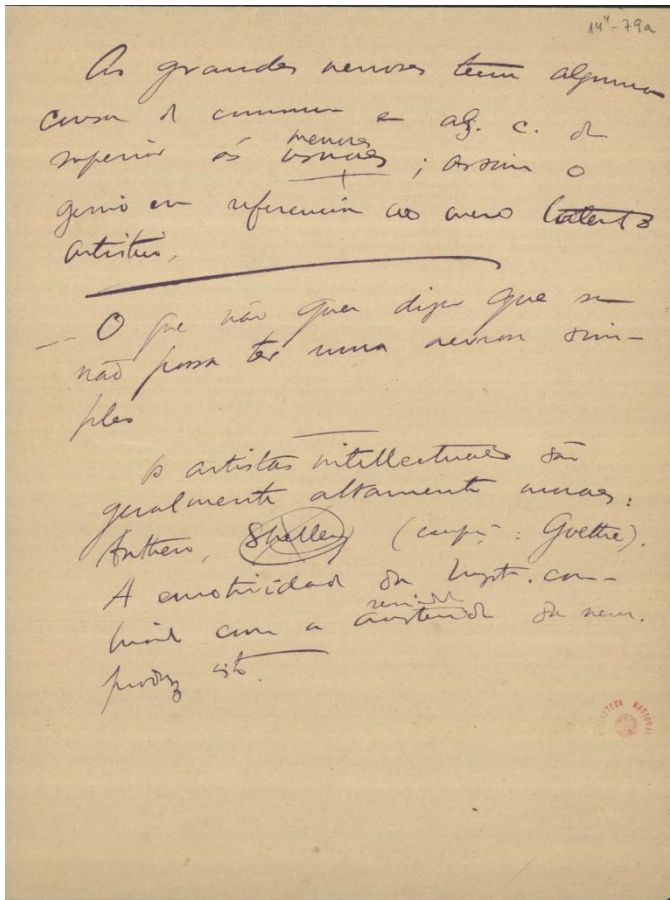 14⁴-79a
As grandes nevroses teem alguma
cousa de commum e alg. c. de
superior ás nevroses usuaes; assim o
genio em referencia ao mero talento
artistico.
— O que não quer dizer que se
não possa ter uma nevrose sim-
ples
Os artistas intellectuaes são
geralmente altamente moraes:
Anthero, Shelley (excepç: Goethe).
A emotividade da hyst. com-
binada com a da neur.
produz isto.
BIBLIOTECA NACIONAL